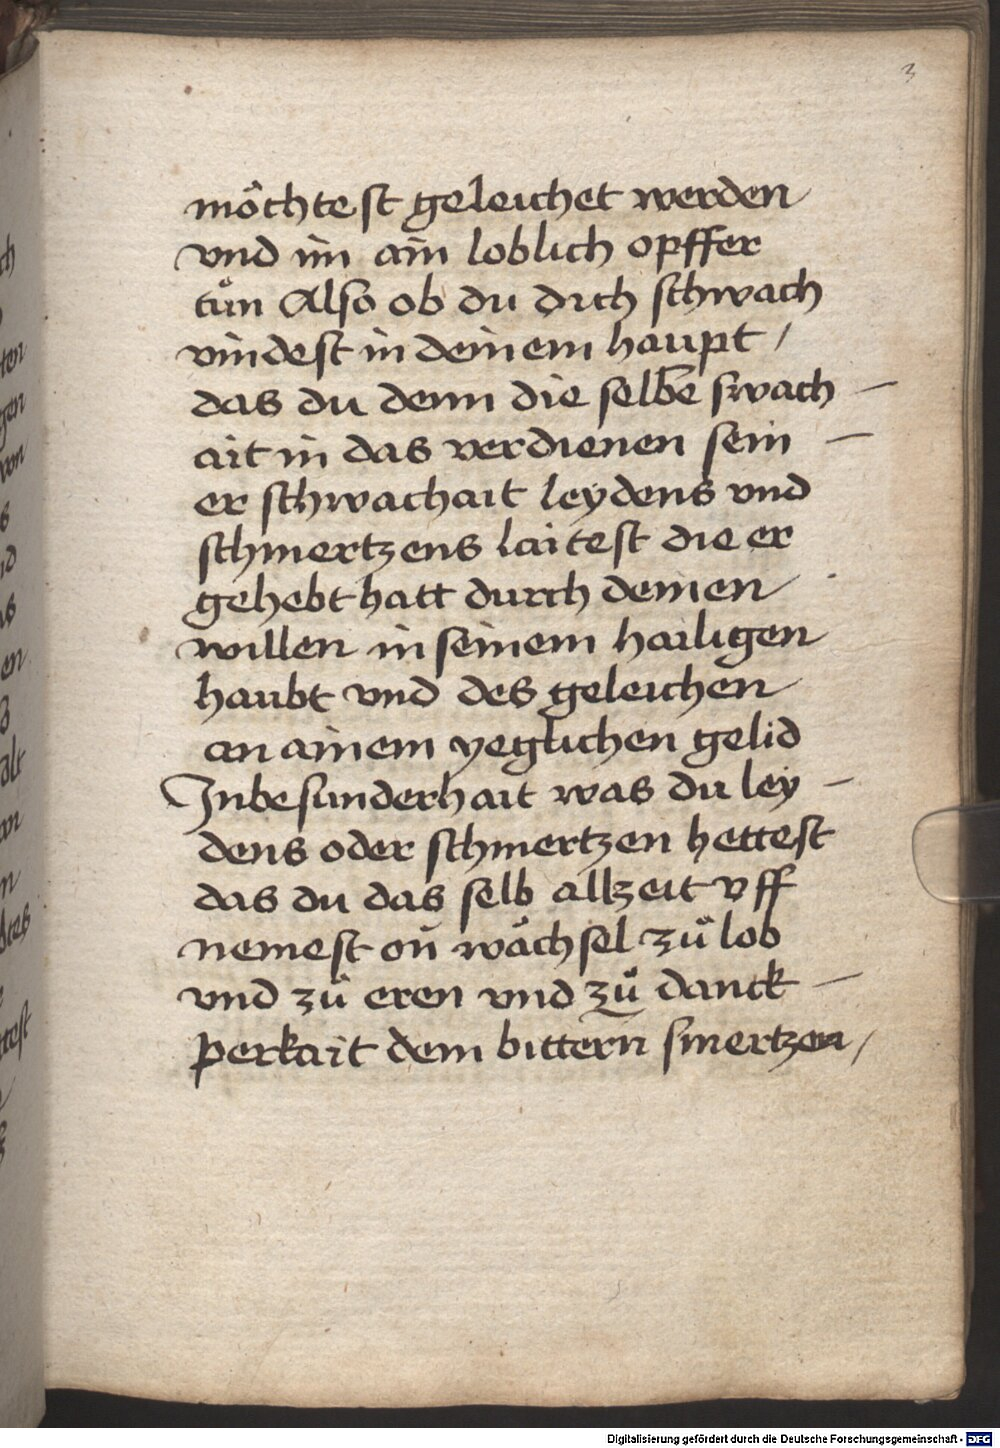 3
möchtest geleichet werden
vnd im ain loblich opffer
tůn Also ob du dich schwach
vindest in deinem haupt /
das du denn die selbe swach –
ait in das verdienen sein –
er schwachait leydens vnd
schmertzens laitest die er
gehebt hatt durch deinen
willen in seinem hailigen
haubt vnd des geleichen
an ainem yeglichen gelid
Inbesunderhait was du ley –
dens oder schmertzen hettest
das du das selb allzeit vff
nemest on wächsel zů lob
vnd zů eren vnd zů danck –
perkait dem bittern smertzen /
Digitalisierung gefördert durch die Deutsche Forschungsgemeinschaft - DFG